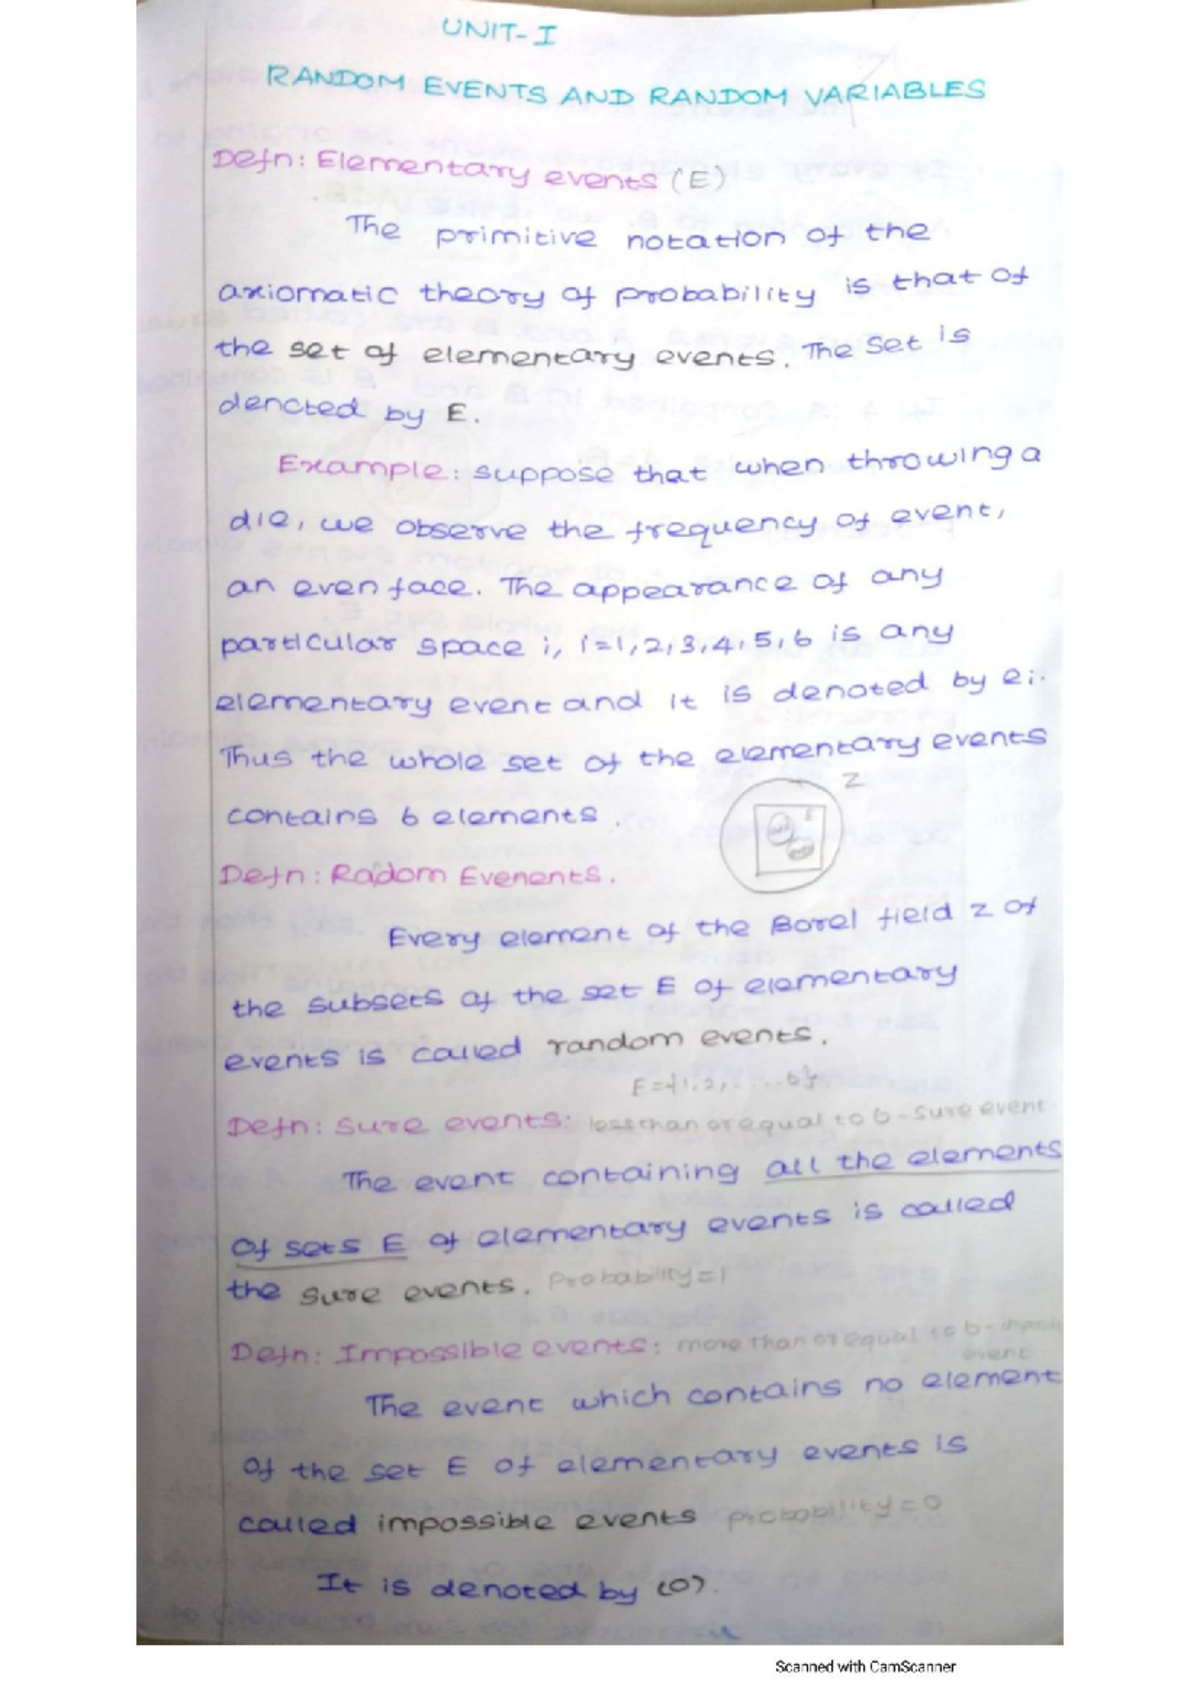 UNIT-I
RANDOM EVENTS AND RANDOM VARIABLES
Defn: Elementary events (E)
The primitive notation of the
axiomatic theory of probability is that of
the set of elementary events. The Set is
denoted by E.
Example: suppose that when throwing a
die, we observe the frequency of event,
an even face. The appearance of any
particular space i, i=1,2,3,4,5,6 is any
elementary event and it is denoted by ei.
Thus the whole set of the elementary events
contains 6 elements.
Z
E
Defn: Radom Evenents.
Every element of the Borel field z of
the subsets of the set E of elementary
events is called random events.
E={1,2,....6}
Defn: Sure events: less than or equal to 6 - Sure event
The event containing all the elements
Of sets E of elementary events is called
the sure events. Probability=1
Defn: Impossible events: more than or equal to 6 -
event
The event which contains no element
of the set E of elementary events is
called impossible events probability=0
It is denoted by (0).
Scanned with CamScanner